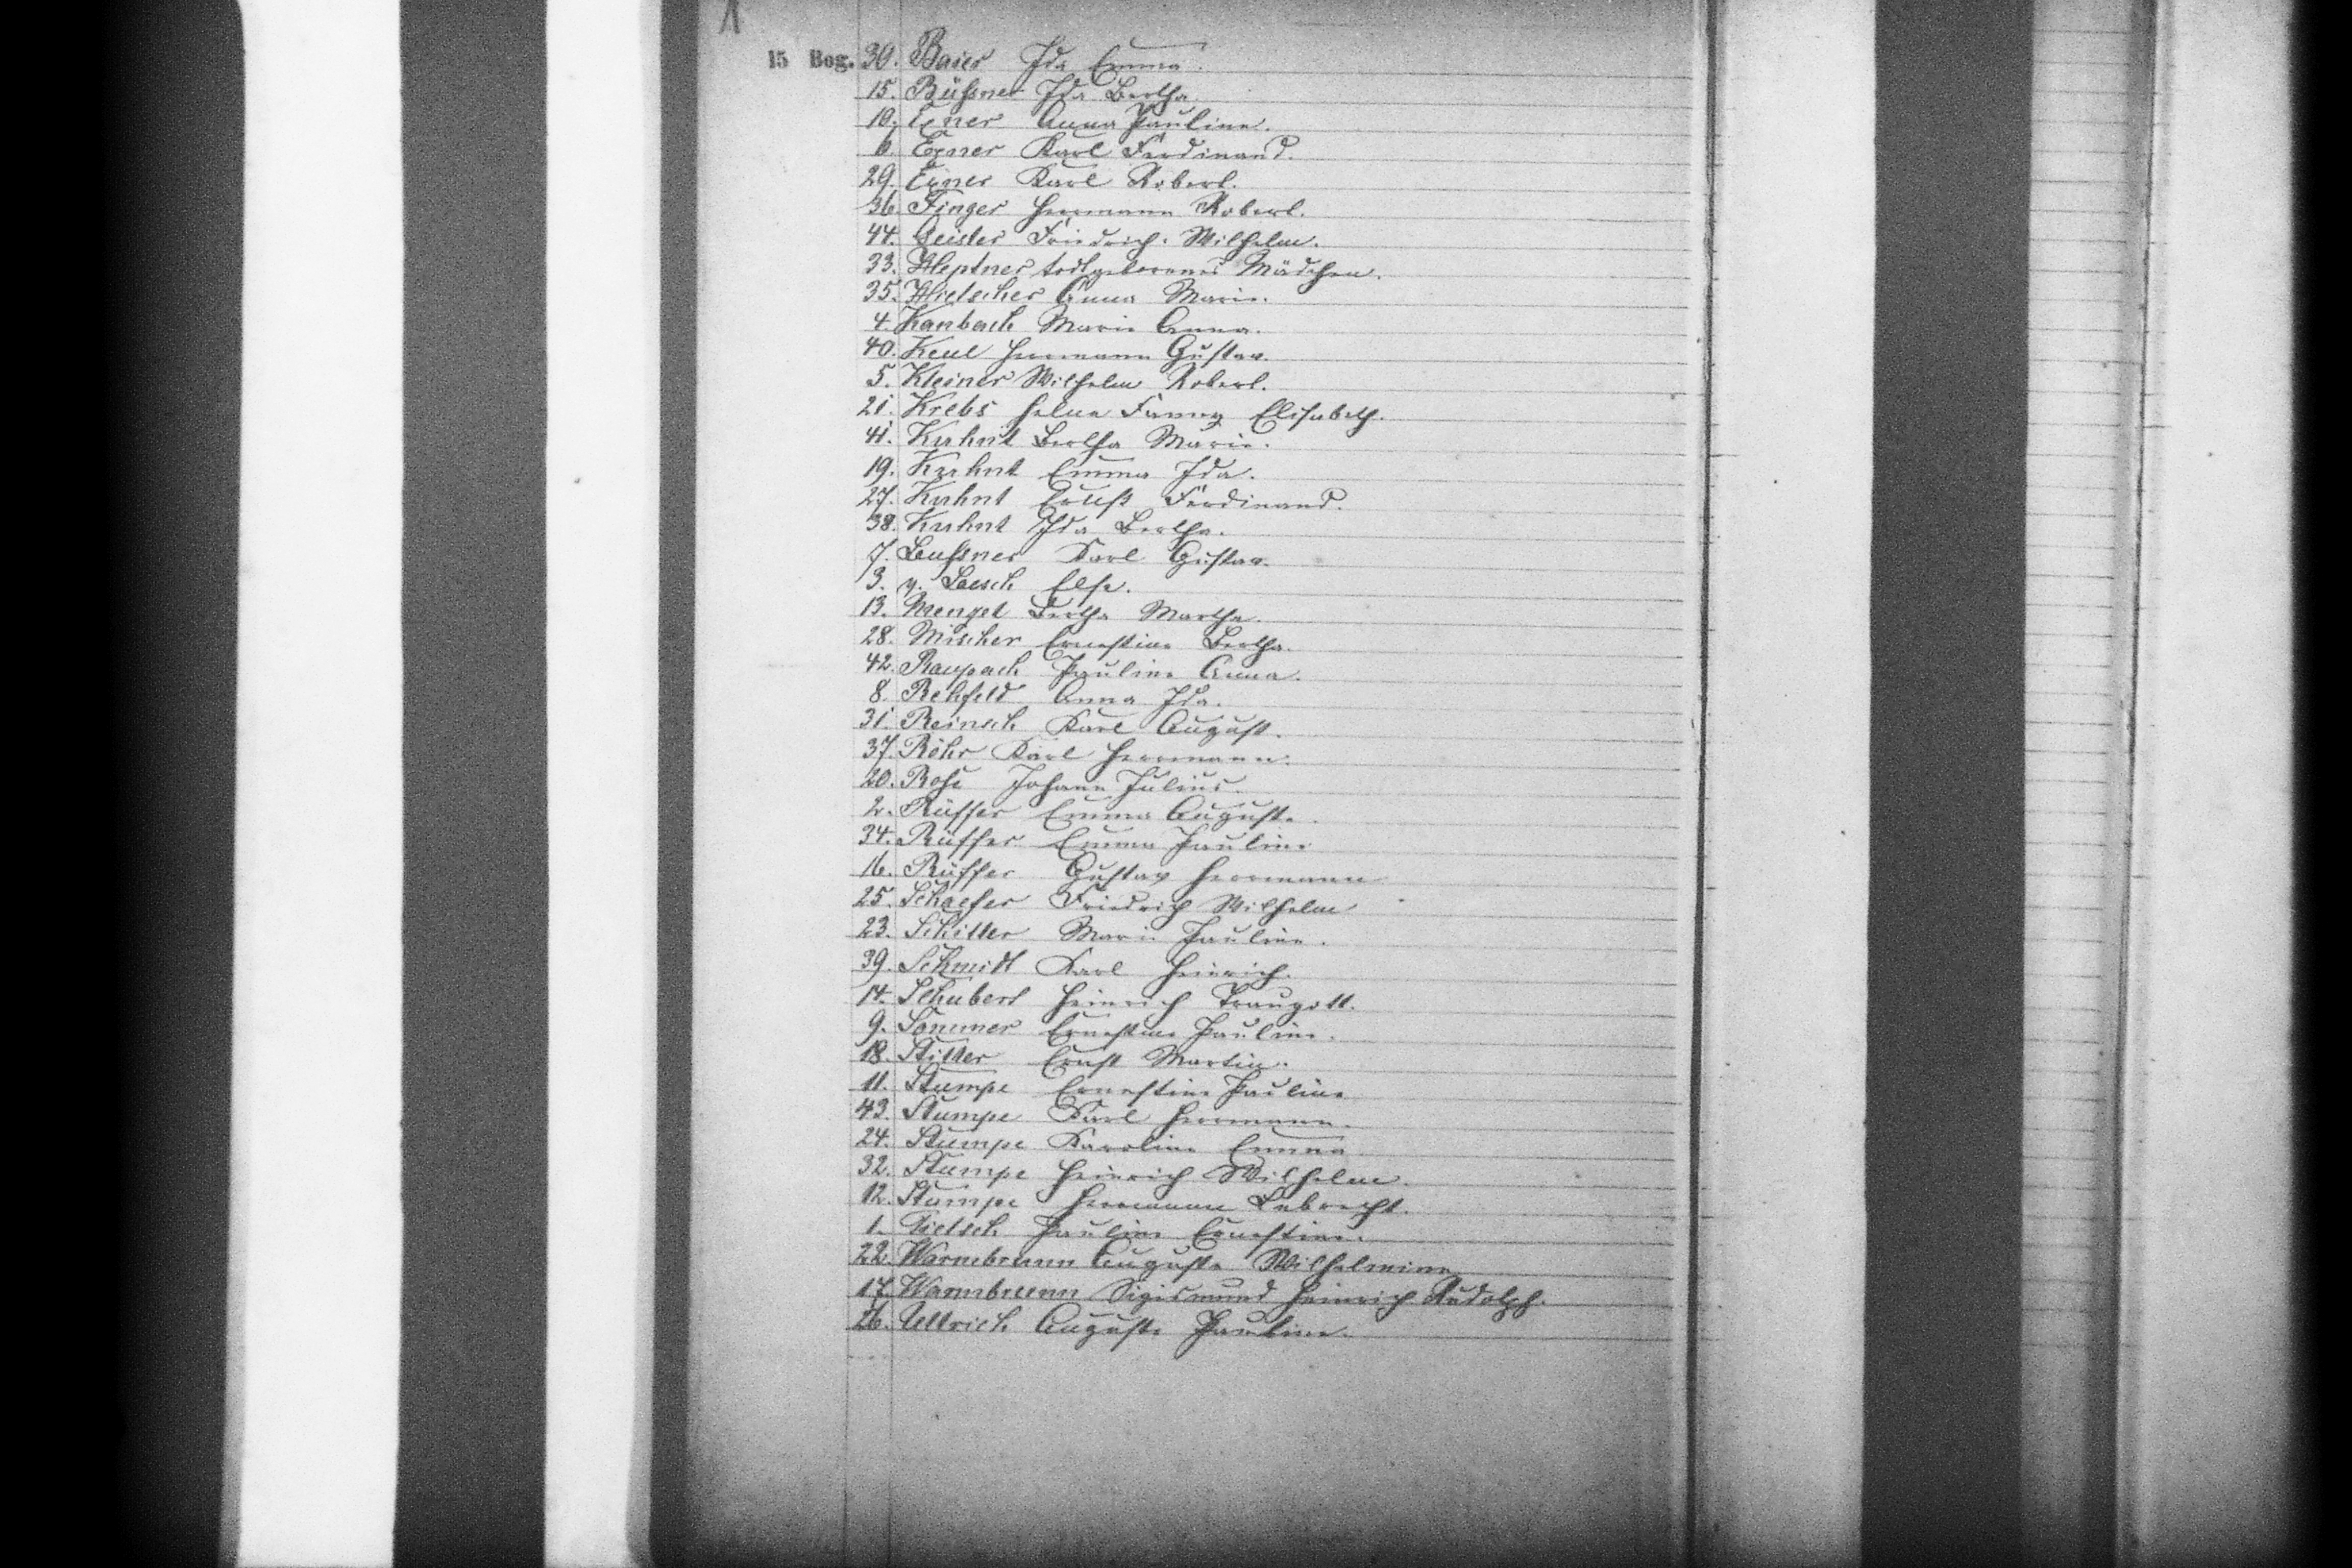 15 Bog. 30. Baier Ida Emma.
15. Büßner Ida Bertha
10. Exner Anna Pauline.
6. Exner Karl Ferdinand.
29. Exner Karl Robert.
36. Finger Herrmann Robert.
44. Geisler Friedrich Wilhelm.
33. Heptner todtgeborenes Mädchen.
35. Hielscher Anna Marie.
4. Kanbach Marie Anna.
40. Keul Herrmann Gustav.
5. Kleiner Wilhelm Robert.
21. Krebs Helene Fanny Elisabeth.
41. Kuhnt Bertha Marie.
19. Kuhnt Emma Ida.
27. Kuhnt Ernst Ferdinand.
38. Kuhnt Ida Bertha.
7. Leußner Karl Gustav.
3. v. Loesch Else.
13. Menzel Bertha Martha.
28. Mischer Ernestine Bertha.
42. Raupach Pauline Anna.
8. Rehfeld Anna Ida.
31. Reinsch Karl August.
37. Röhr Karl Herrmann.
20. Rose Johann Julius.
2. Rüffer Emma Auguste.
34. Rüffer Emma Pauline
16. Rüffer Gustav Herrmann
25. Schaefer Friedrich Wilhelm
23. Schiller Marie Pauline.
39. Schmidt Karl Heinrich.
14. Schubert Heinrich Traugott.
9. Sommer Ernestine Pauline.
18. Stiller Ernst Martin.
11. Stumpe Ernestine Pauline
43. Stumpe Karl Herrmann.
24. Stumpe Karoline Emma
32. Stumpe Heinrich Wilhelm.
12. Stumpe Herrmann Lebrecht.
1. Tietsch Pauline Ernestine.
22. Warmbrunn Auguste Wilhelmine
17. Warmbrunn Sigismund Heinrich Rudolph.
26. Ullrich Auguste Pauline.